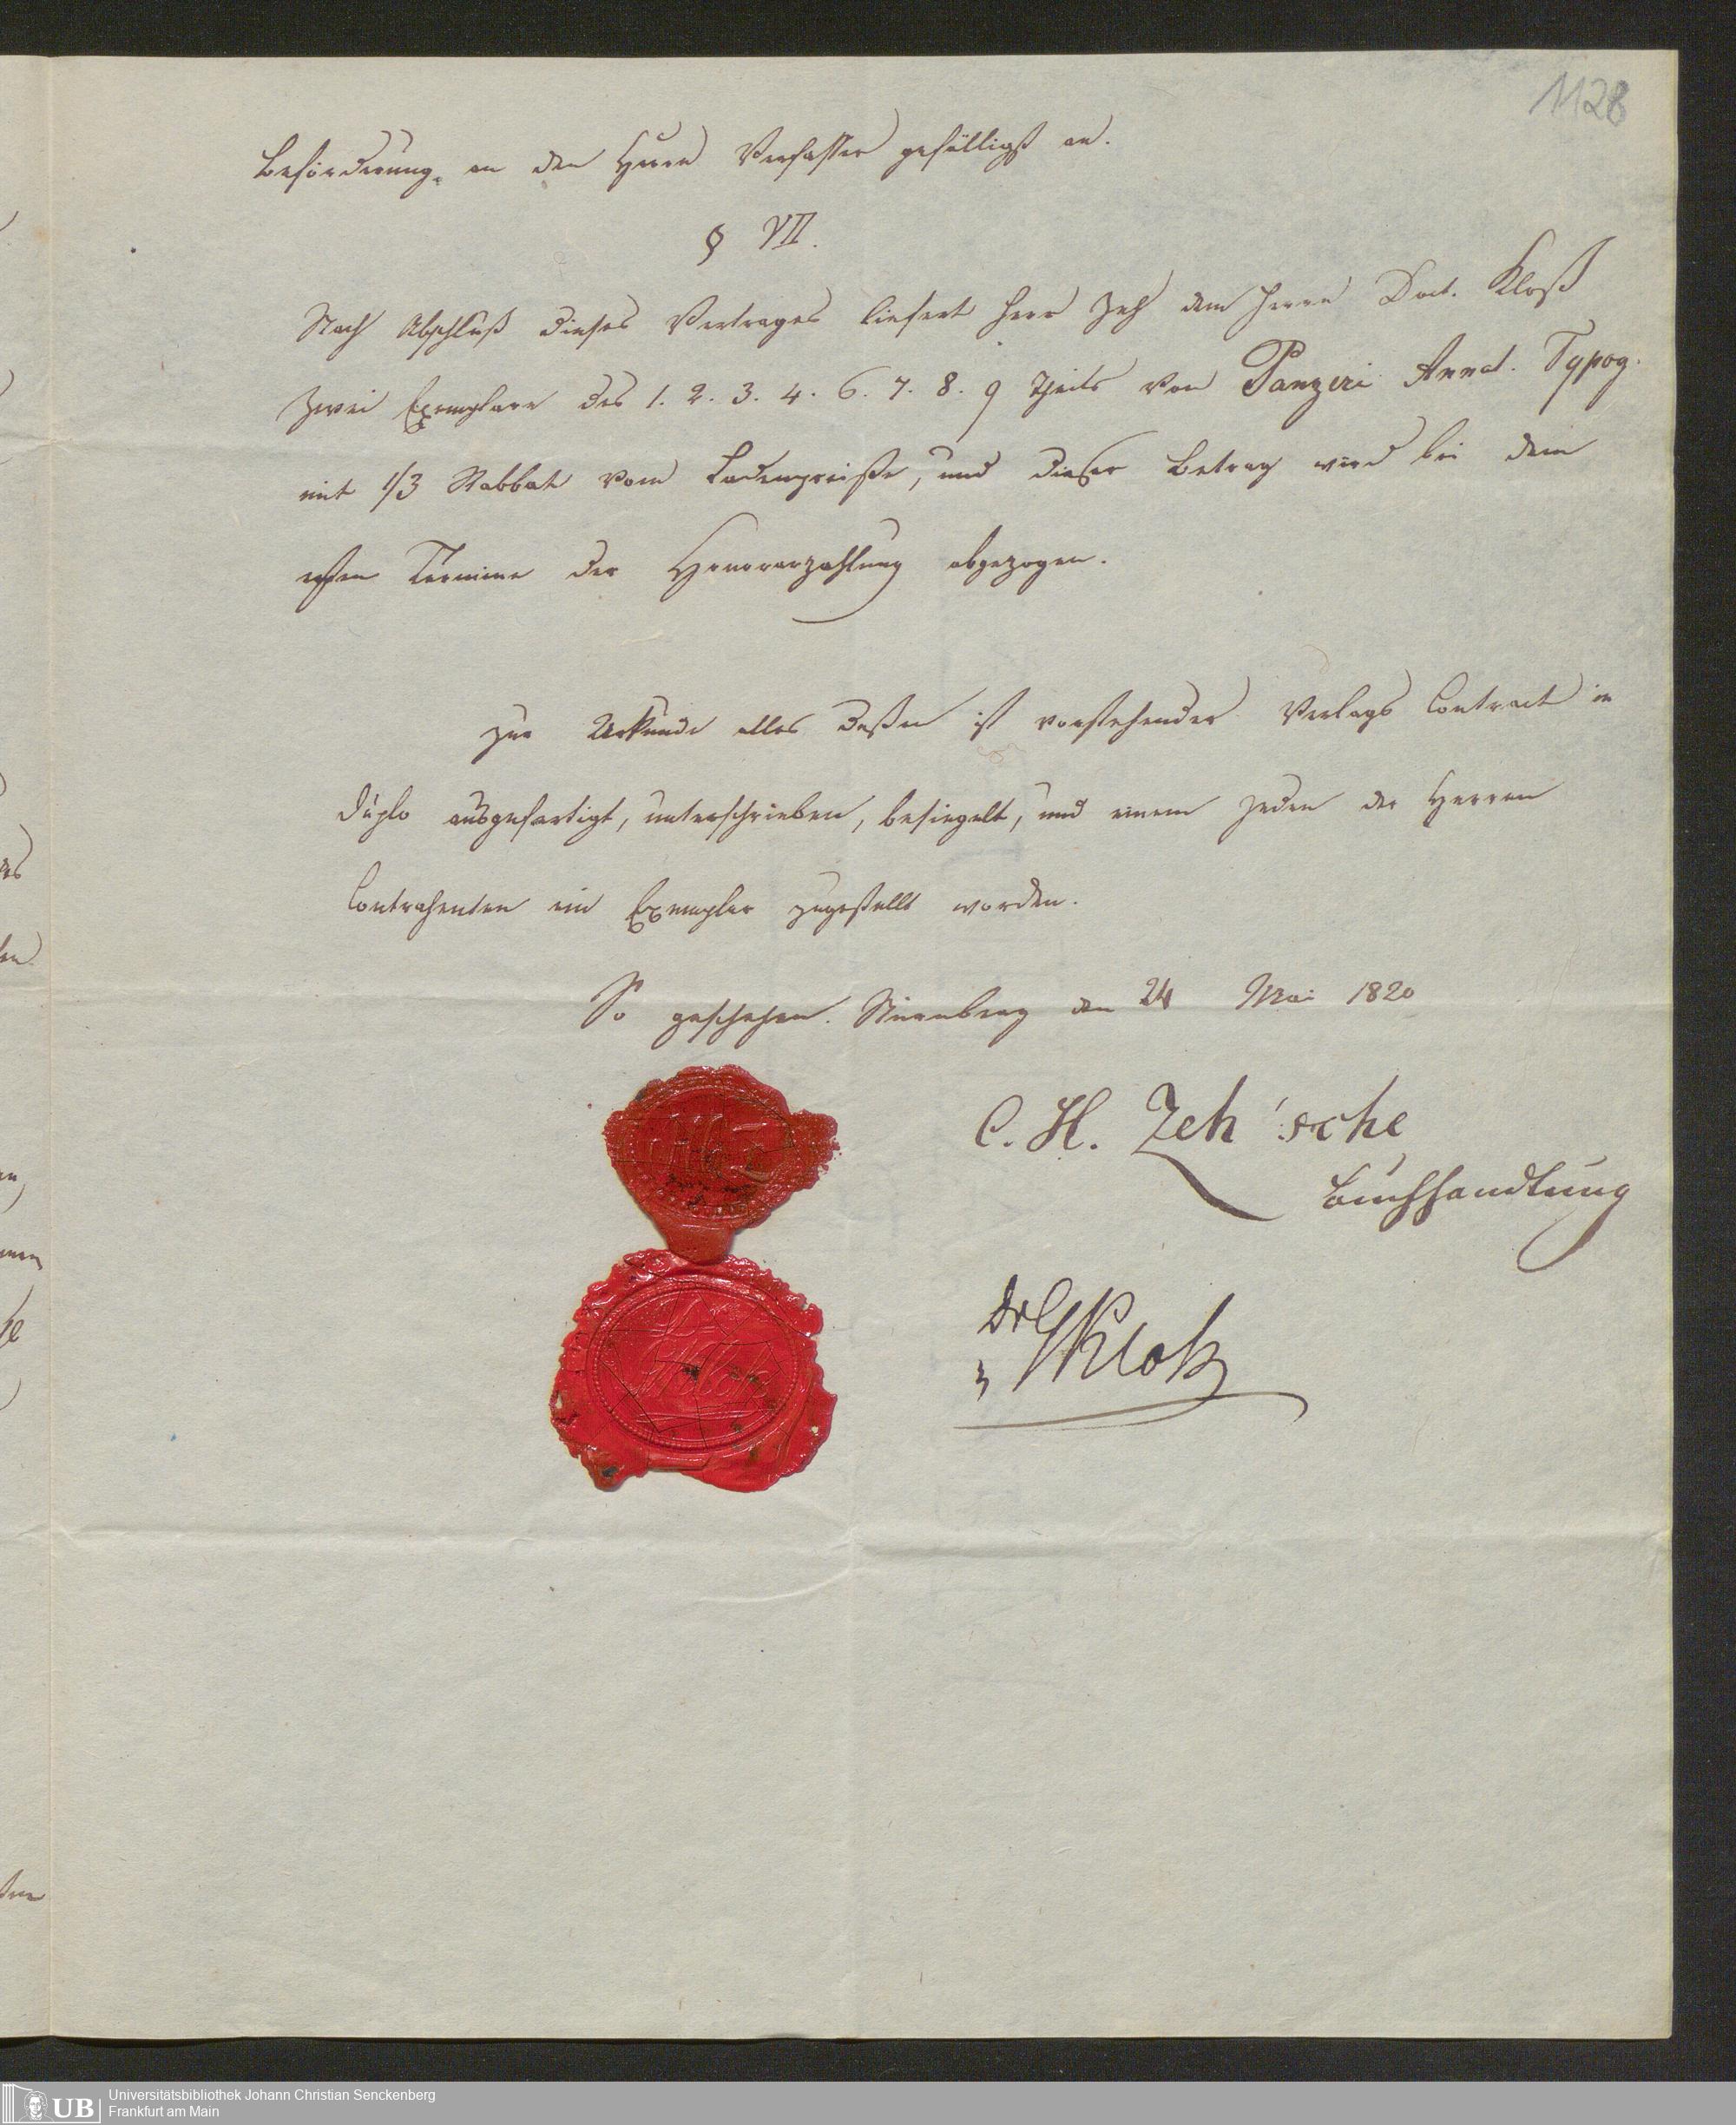 1128
Beförderung an den Herrn Verfasser gefälligst an.
§ VII.
Nach Abschluß dieses Vertrages liefert Herr Zeh dem Herrn Doct. Kloß
zwei Exemplare des 1. 2. 3. 4. 6. 7. 8. 9 Theils von Panzeri Annal. Typog.
mit 1/3 Rabbat vom Ladenpreiße, und dieser Betrag wird bei dem
ersten Termine der Honorarzahlung abgezogen.
Zur Urkunde alles deßen ist vorstehender Verlags Contract in
Duplo ausgefertigt, unterschrieben, besiegelt, und einem jeden der Herren
Contrahenten ein Exemplar zugestellt worden.
So geschehen. Nürnberg den 24 Mai 1820
C. H. Zeh'sche
Buchhandlung
Dr Kloß
UB
Universitätsbibliothek Johann Christian Senckenberg
Frankfurt am Main